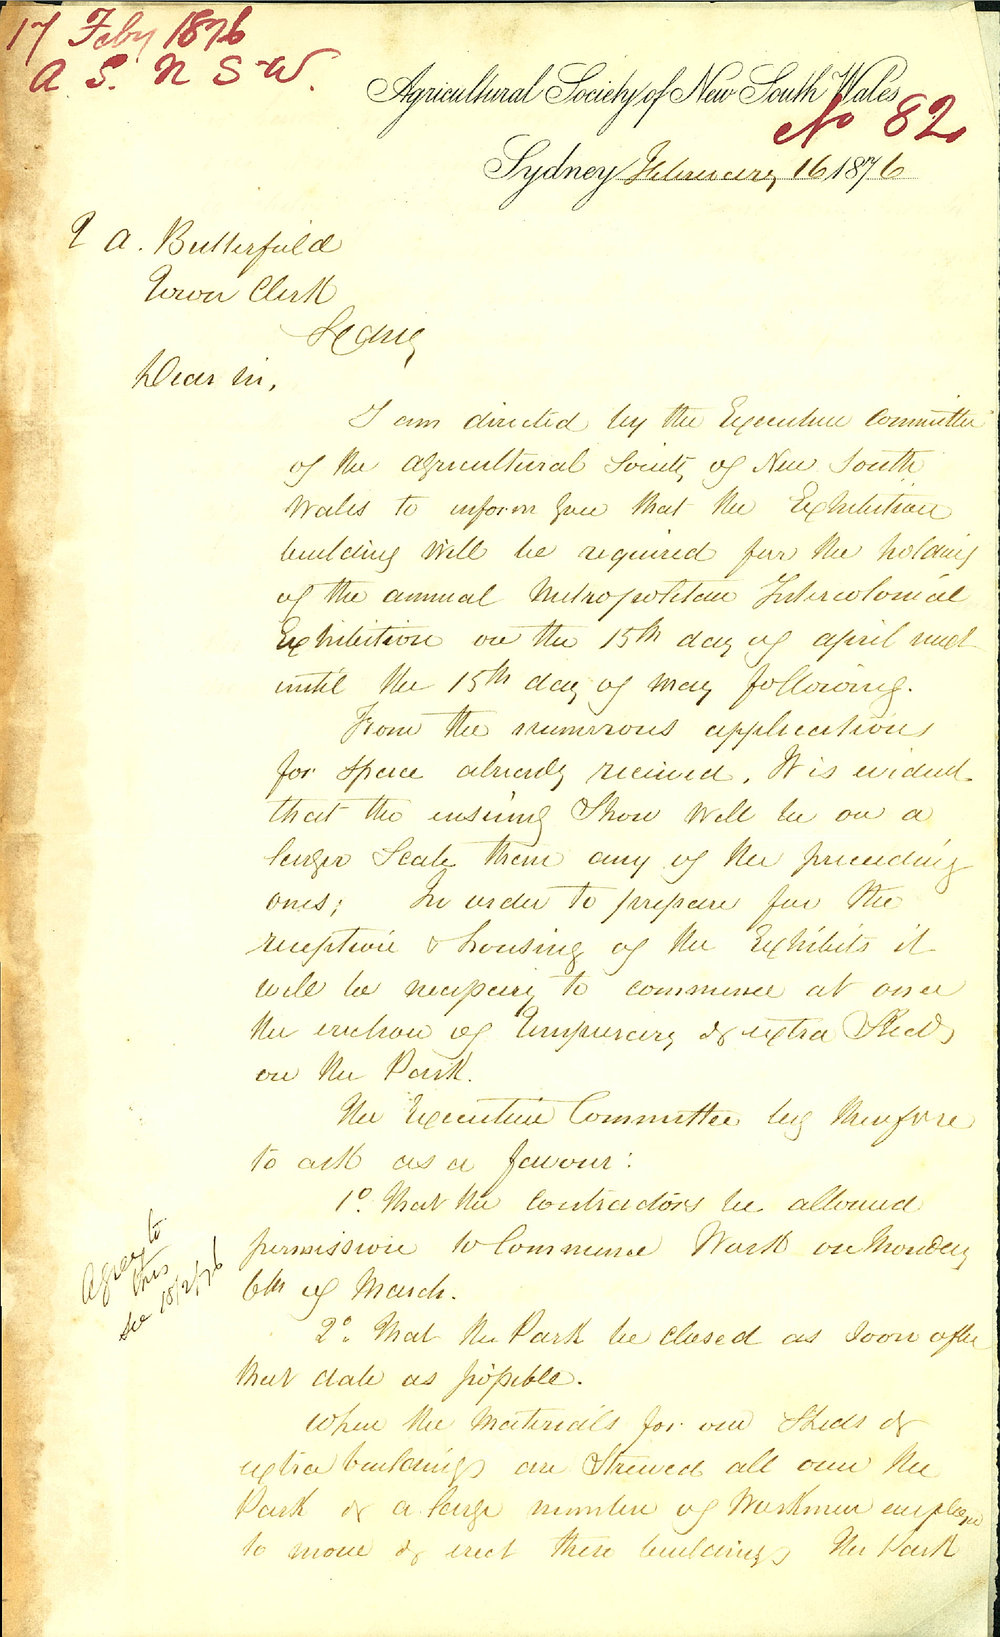 17 Feby 1876
A. S. N S W.
Agricultural Society of New South Wales
No 82
Sydney February 16 1876
A. Butterfield
Town Clerk
Sydney
Dear Sir,
I am directed by the Executive Committee
of the Agricultural Society of New South
Wales to inform you that the Exhibition
building will be required for the holding
of the annual Metropolitan Intercolonial
Exhibition on the 15th day of April next
until the 15th day of May following.
From the numerous applications
for space already received, It is evident
that the ensuing Show will be on a
larger Scale than any of the preceeding
ones; In order to prepare for the
reception & housing of the Exhibits it
will be necessary to commence at once
the erection of temporary & extra Sheds
on the Park.
The Executive Committee beg therefore
to ask as a favour:
1o. That the Contractors be allowed
permission to Commence Work on Monday
6th of March.
Agree to
this
18/2/76
2o. That the Park be closed as soon after
that date as possible.
When the Materials for our Sheds &
extra buildings are Strewed all over the
Park & a large number of Workmen employed
to move & erect these buildings the Park